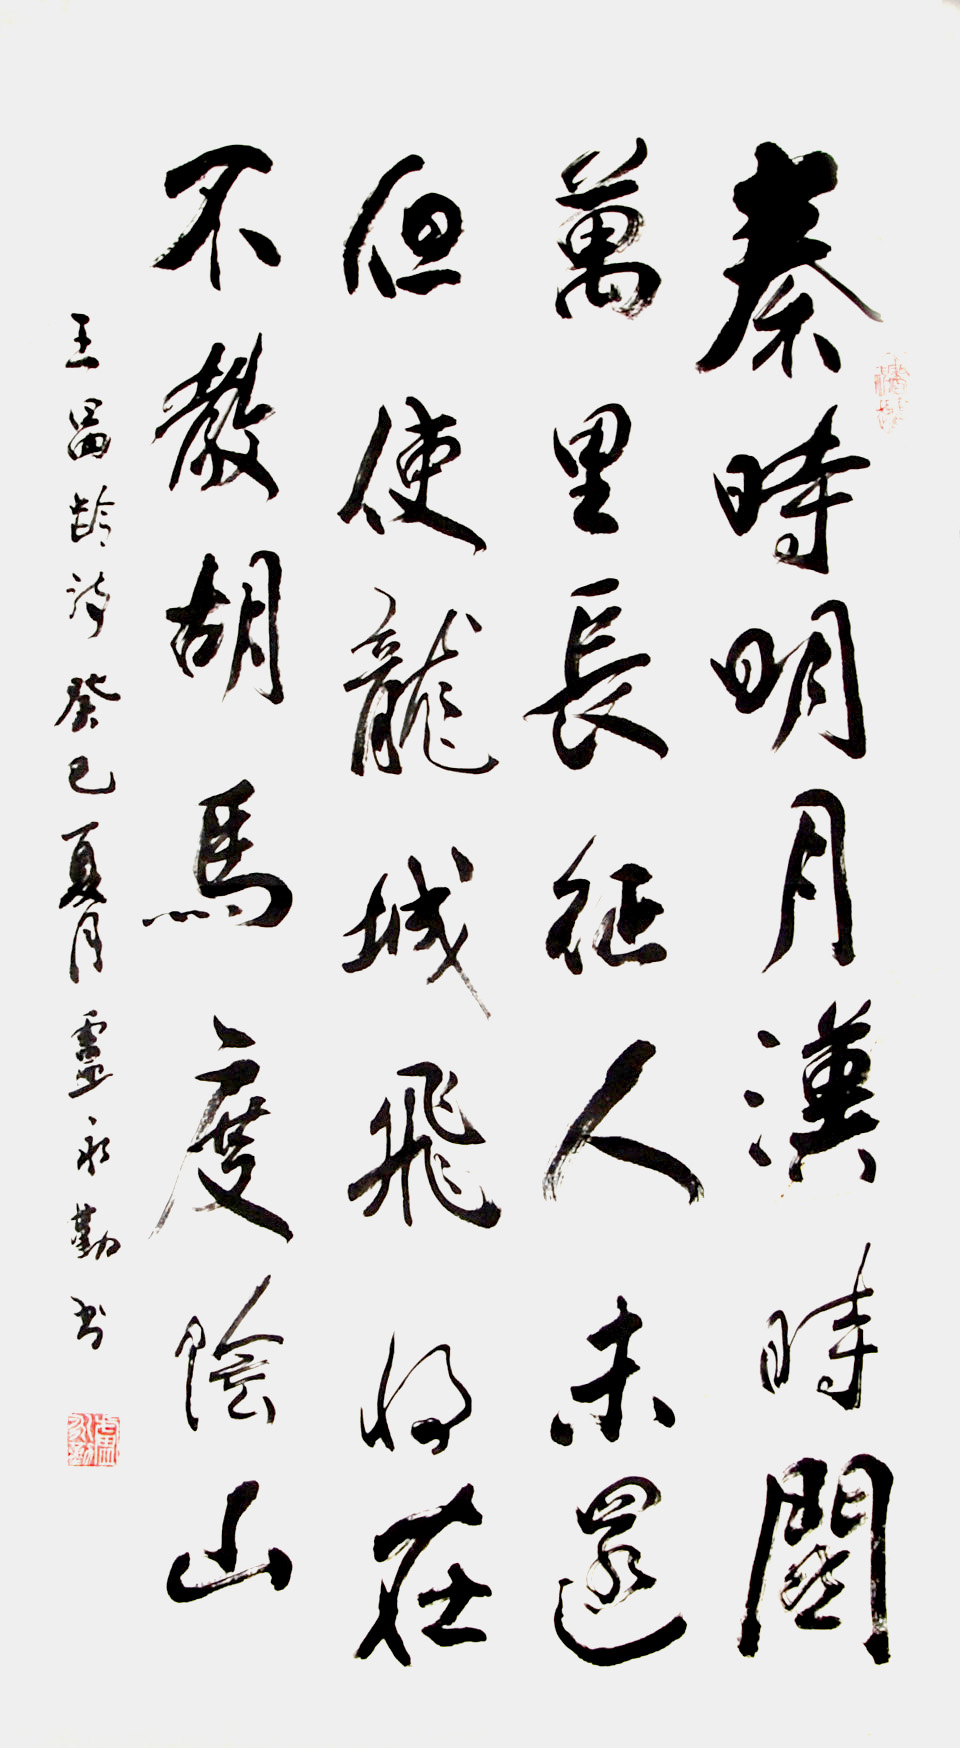 秦時明月漢時關
萬里長征人未還
但使龍城飛將在
不教胡馬度陰山
王昌齡詩癸巳夏月盧永勤书